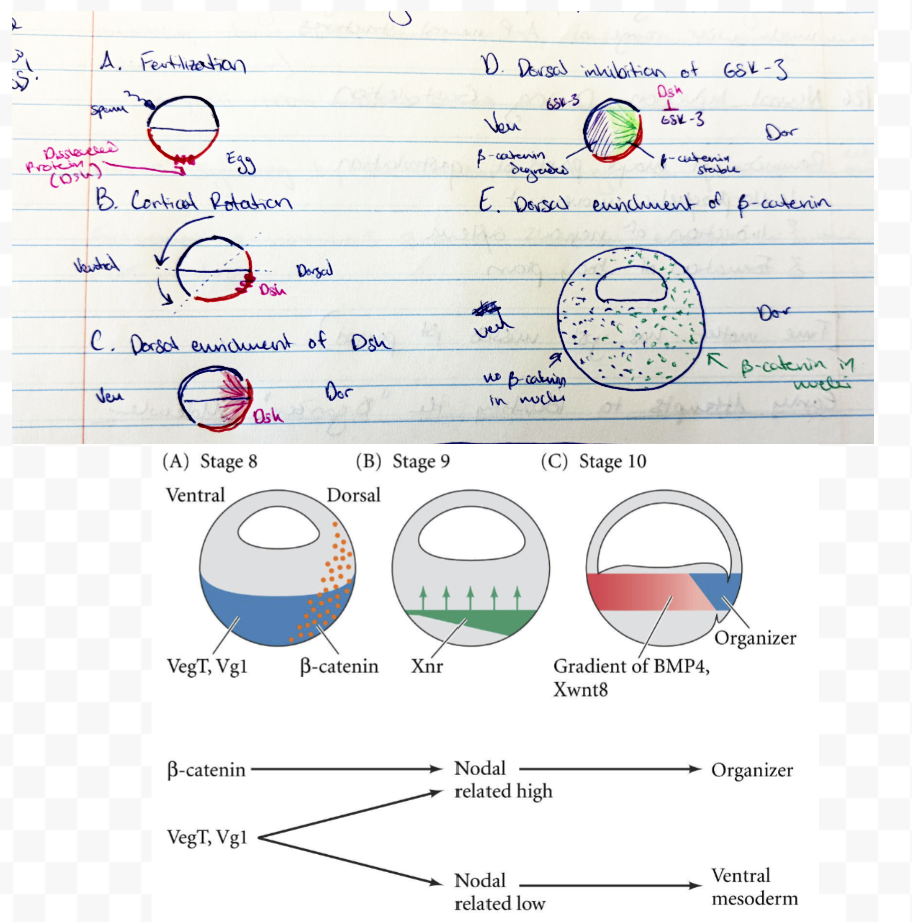 A. Fertilization
sperm
Dissheveled
Protein
(Dsh)
Egg
B. Cortical Rotation
Ventral
Dorsal
Dsh
C. Dorsal enrichment of Dsh
Ven
Dor
Dsh
D. Dorsal inhibition of GSK-3
GSK-3
Dsh
GSK-3
Ven
Dor
β-catenin
degraded
β-catenin
stable
E. Dorsal enrichment of β-catenin
Ven
Dor
no β-catenin
in nuclei
β-catenin in
nuclei
(A) Stage 8
(B) Stage 9
(C) Stage 10
Ventral
Dorsal
Organizer
VegT, Vg1
β-catenin
Xnr
Gradient of BMP4,
Xwnt8
β-catenin
Nodal
related high
Organizer
VegT, Vg1
Nodal
related low
Ventral
mesoderm